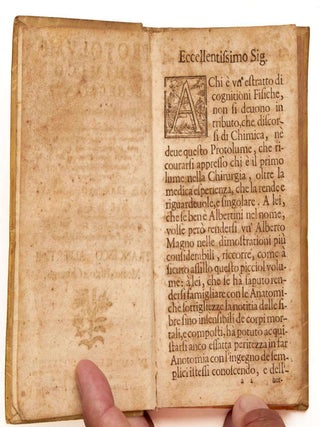 Eccellentissimo Sig.
A Chi è vn' estratto di
cognitioni Fisiche,
non si deuono in
tributo, che discor-
si di Chimica, nè
deue questo Protolume, che ri-
courarsi appresso chi è il primo
lume nella Chirurgia, oltre la
medica esperienza, che la rende e
riguardeuole, e singolare. A lei,
che se bene Albertini nel nome,
volle però rendersi vn' Alberto
Magno nelle dimostrationi più
considerabili, ricorre, como à
sicuro assillo questo picciol volu-
me; à lei, che se hà saputo ren-
dersi famigliare con le Anatomi-
che sottigliezze la notitia delle fi-
bre sino insensibili de corpi mor-
tali, e composti, hà potuto acqui-
starsi anco essatta peritezza in far
Anotomia con l'ingegno de sem-
plici istessi conoscendo, e dell-
a 2